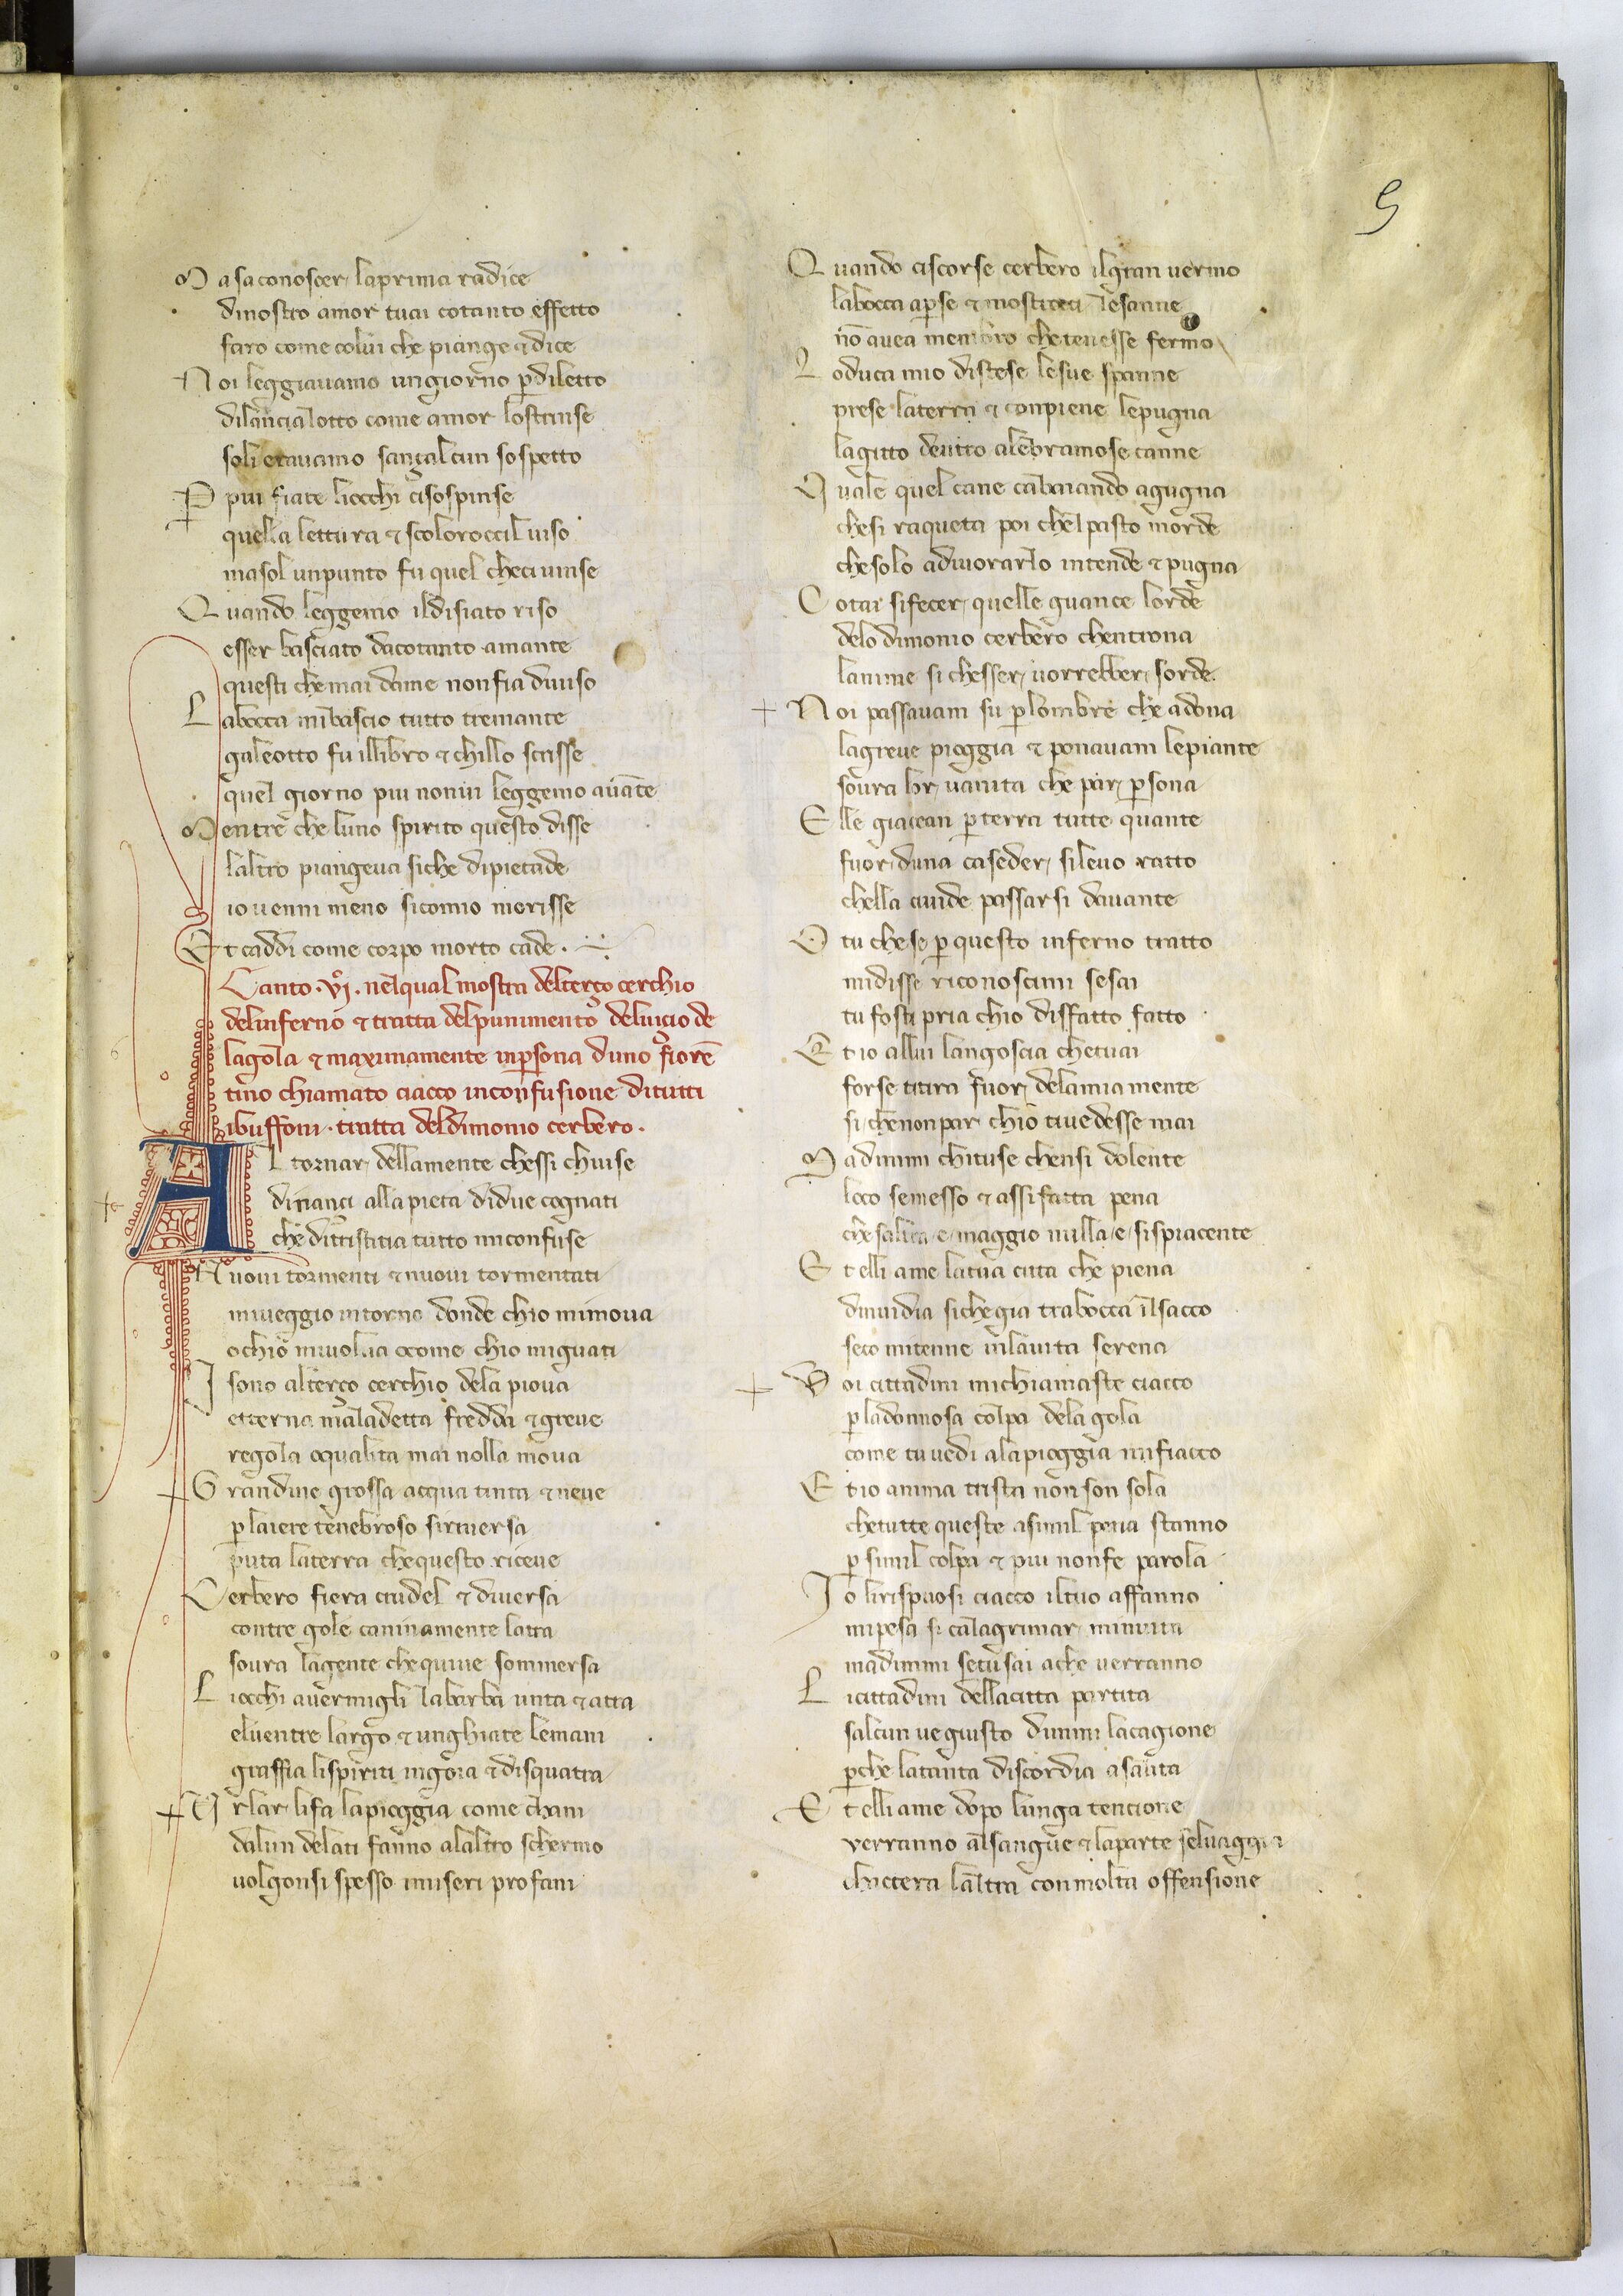 5
M a sa conoscer laprima radice
dinostro amor tuai cotanto effetto
faro come colui che piange & dice
N oi leggiavamo un giorno p diletto
dilancialotto come amor lostrinse
soli eravamo sanzalcun sospetto
P piu fiate liocchi cisospinse
quella lettura & scoloroccil viso
masol unpunto fu quel checivinse
Q uando leggemo ildisiato riso
esser basciato dacotanto amante
questi che mai dame nonfia diviso
L abocca mi bascio tutto tremante
galeotto fu illibro & chillo scrisse
quel giorno piu nonvi leggemo avãte
M entre che luno spirito questo disse
laltro piangeva siche dipietade
io venni meno sicomio morisse
E t caddi come corpo morto cade .
Canto . vi . nelqual mostra delterço cerchio
delinferno & tratta delpunimento delvicio de
lagola & maximamente inpersona duno fiorẽ
tino chiamato ciacco inconfusione ditutti
ibuffoni . tratta deldimonio cerbero .
A L tornar dellamente chessi chiuse
dinanci alla pieta didue cognati
che ditristitia tutto miconfuse
N uovi tormenti & nuovi tormentati
miveggio intorno donde chio mimova
ochio mivolua ecome chio miguati
I sono alterço cerchio dela piova
etterna maladetta fredda & greve
regola equalita mai nolla mova
G randine grossa acqua tinta & neve
p laiere tenebroso siriversa
puta laterra chequesto riceve
C erbero fiera crudel & diversa
contre gole caninamente latra
sovra lagente chequive sommersa
L iocchi avermigli labarba unta & atra
elventre largo & unghiate lemani
graffia lispiriti ingoia & disquatra
U rlar lifa lapioggia come chani
dalun delati fanno alaltro schermo
volgonsi spesso miseri profani
Q uando ciscorse cerbero ilgran vermo
labocca aperse & mostrocci lesanne
nõ avea membro chetenesse fermo
L oduca mio distese lesue spanne
prese laterra & conpiene lepugna
lagitto dentro alebramose canne
Q uale quel cane cabaiando agugna
chesi raqueta poi chelpasto morde
chesolo adivorarlo intende & pugna
C otai sifecer quelle guance lorde
delo dimonio cerbero chentrona
lanime si chesser vorrebber sorde
N oi passavam su p lombre che adona
lagreve pioggia & ponavam lepiante
sovra lor vanita che par psona
E lle giacean p terra tutte quante
fuor duna caseder silevo ratto
chella civide passarsi davante
O tu chese p questo inferno tratto
midisse riconoscimi sesai
tu fosti pria chio disfatto fatto
E t io allui langoscia chetuai
forse titira fuor delamia mente
si chenonpar chio tivedesse mai
M a dimmi chituse chensi dolente
loco semesso & assifatta pena
che saltra e maggio nulla e sispiacente
E t elli ame latua citta che piena
dinvidia sichegia trabocca ilsacco
seco mitenne inlavita serena
V oi cittadini michiamaste ciacco
p ladannosa colpa dela gola
come tu vedi alapioggia mifiacco
E t io anima trista non son sola
chetutte queste asimil pena stanno
p simil colpa & piu nonfe parola
I o lirispuosi ciacco iltuo affanno
mipesa si calagrimar minvita
madimmi setusai ache verranno
L icittadini dellacitta partita
salcun vegiusto dimmi lacagione
pche latanta discordia asalita
E t elli ame dopo lunga tencione
verranno alsangue & laparte selvaggia
chaccera laltra conmolta offensione